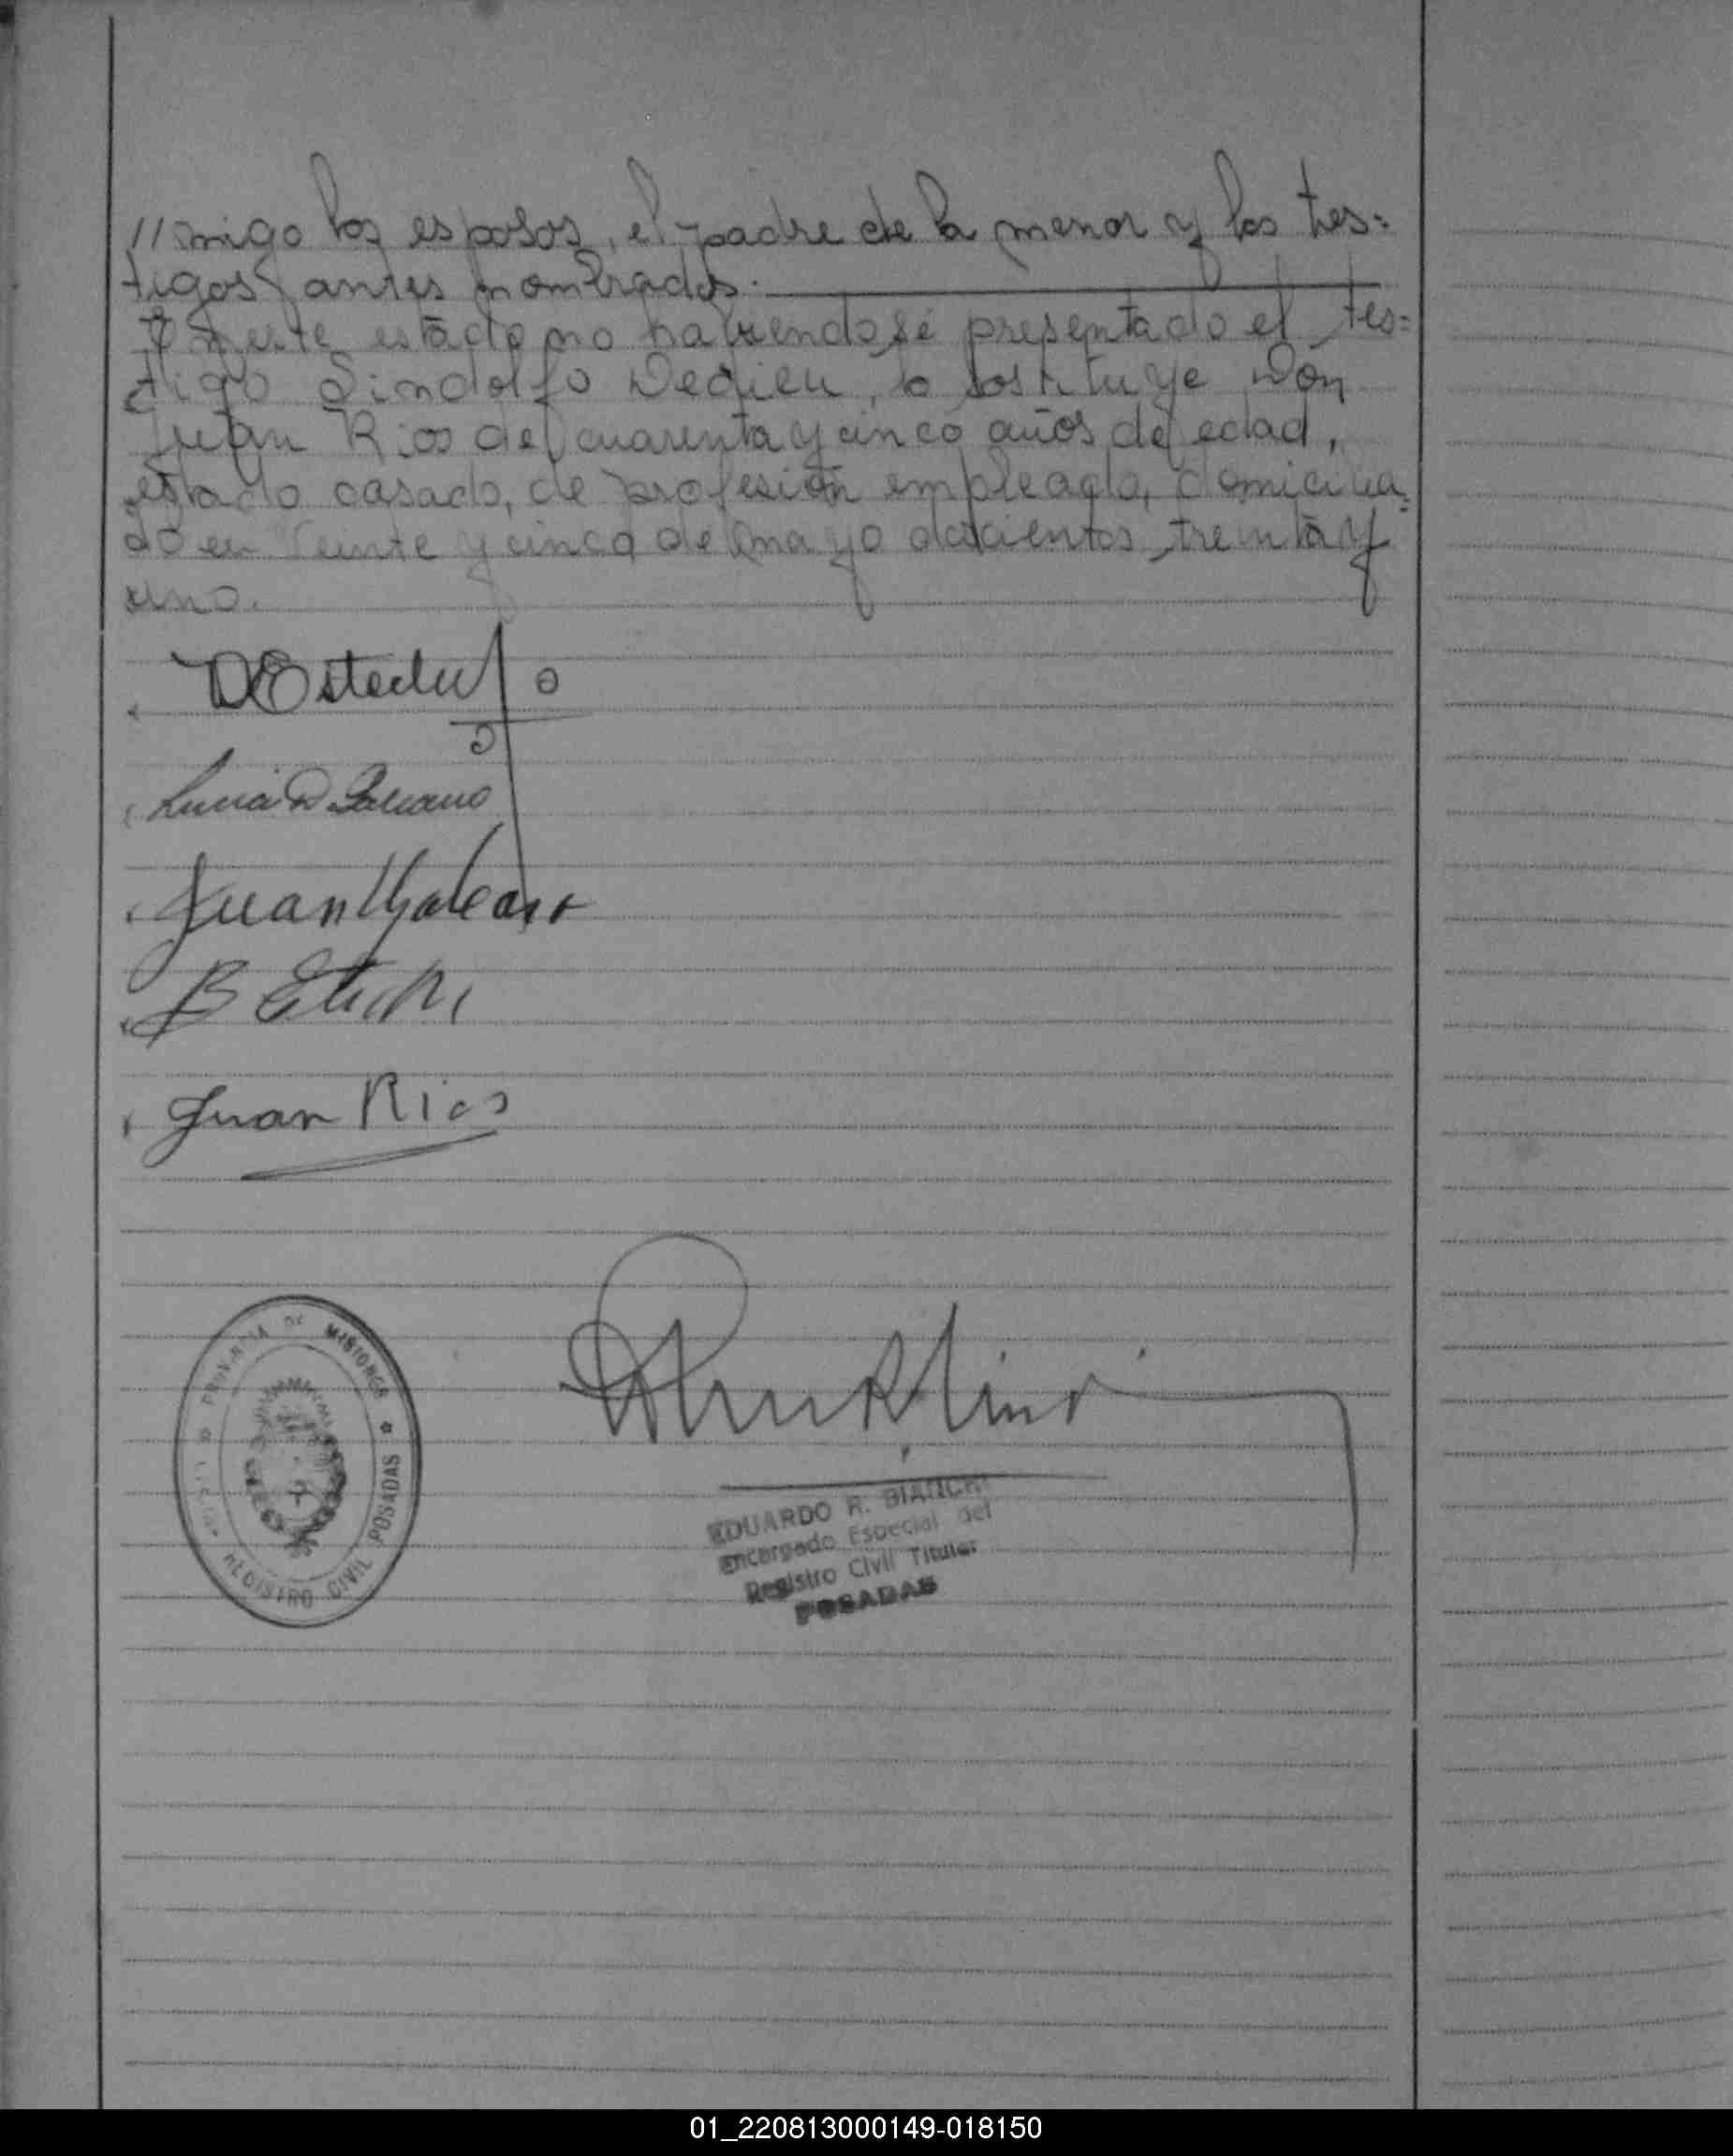 //migo los esposos, el padre de la menor y los tes=
tigos antes nombrados.
En este estado no habiendose presentado el tes=
tigo Lindolfo Dedieu, lo sostituye Don
Juan Rios de cuarenta y cinco años de edad,
estado casado, de profesión empleado, domicilia=
do en Veinte y cinco de mayo doscientos treinta y
uno.
Juan Galeano
Juan Rios
PROVINCIA DE MISIONES
REGISTRO CIVIL POSADAS
EDUARDO R. BIANCHI
Encargado Especial del
Registro Civil Titular
POSADAS
01_220813000149-018150